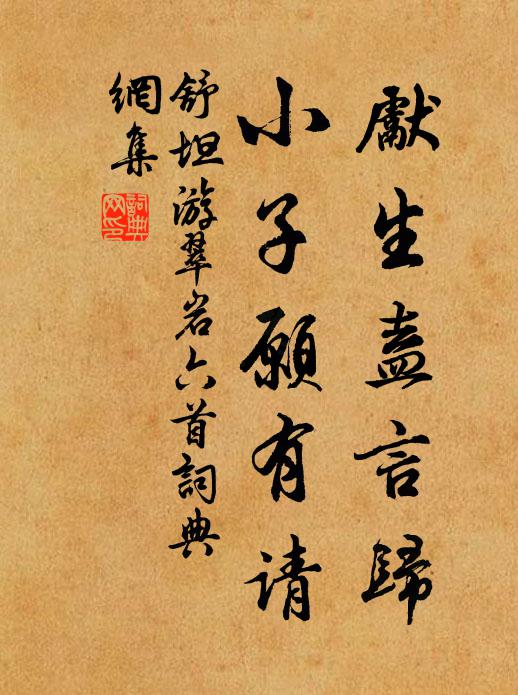 獻生盍言歸
小子願有请
舒坦游翠岩六首詞典
網集
詞典
网印